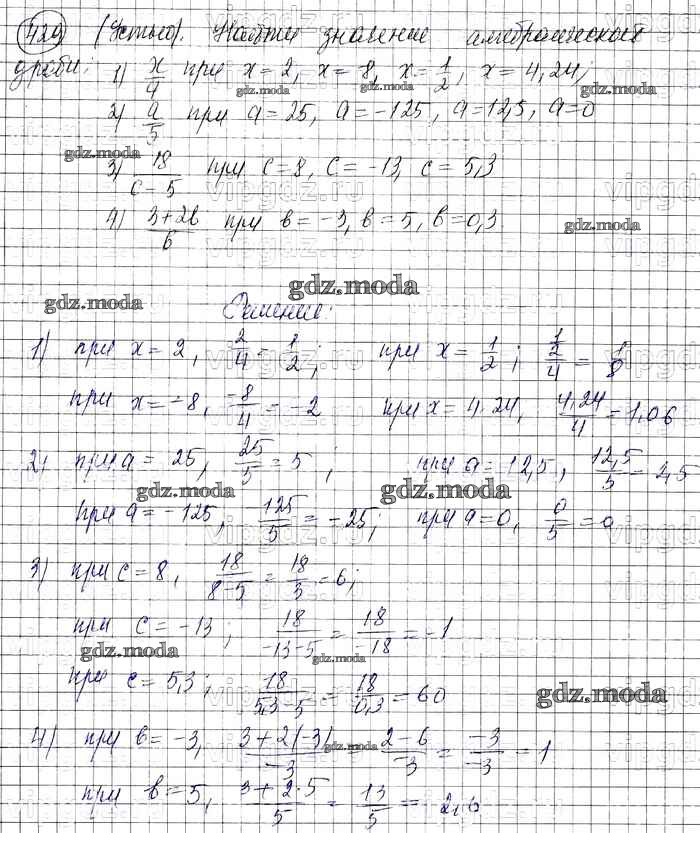 429 (Устно). Найти значение алгебраической
дроби: 1) x/4 при x = 2, x = 8, x = 1/2, x = 4,24;
gdz.moda gdz.moda gdz.moda
2) a/5 при a = 25, a = -125, a = 12,5, a = 0
gdz.moda
3) 18/(c - 5) при c = 8, c = -13, c = 5,3
vipgdz.ru
4) (3 + 2b)/b при b = -3, b = 5, b = 0,3
gdz.moda
gdz.moda
gdz.moda
Решение:
1) при x = 2, 2/4 = 1/2; при x = 1/2; (1/2)/4 = 1/8
при x = -8, -8/4 = -2 при x = 4.24, 4,24/4 = 1,06
2) при a = 25, 25/5 = 5; при a = 12,5, 12,5/5 = 2,5
gdz.moda gdz.moda
при a = -125, 125/5 = -25; при a = 0, 0/5 = 0
3) при c = 8, 18/(8-5) = 18/3 = 6;
при c = -13; 18/(-13-5) = 18/18 = -1
gdz.moda gdz.moda
при c = 5,3; 18/(5,3-5) = 18/0,3 = 60
gdz.moda
4) при b = -3, (3 + 2(-3))/-3 = (2 - 6)/-3 = -3/-3 = 1
gdz.moda
при b = 5, (3 + 2·5)/5 = 13/5 = 2,6